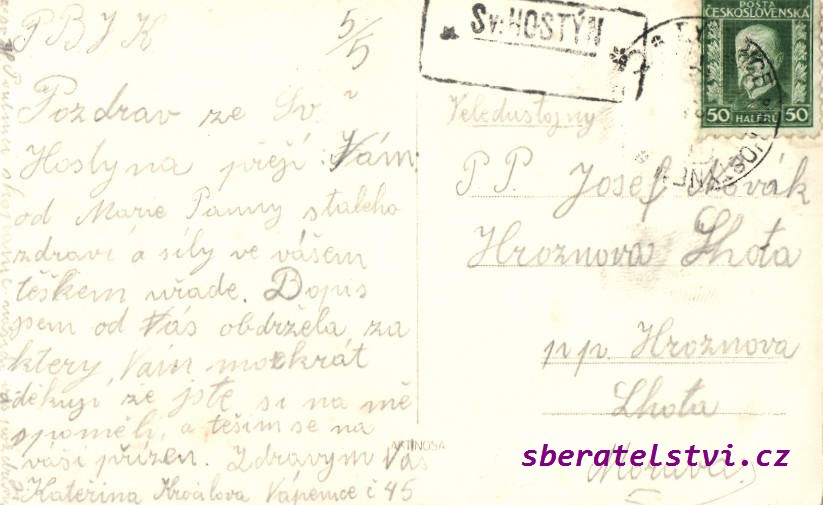 P B J K 5/5
Pozdrav ze Sv.
Hostyna přeji Vám
od Marie Panny staleho
zdraví a síly ve vášem
těškem uřade. Dopis
jsem od Vás obdržela za
ktery Vám mockrát
děkuji že jste si na mě
spoměli, a těším se na
váši přizen. Zdravym Vás
Kateřina Kročilova Vápenice č 45
Sv. HOSTÝN
POŠTA
ČESKOSLOVENSKÁ
50 HALÉŘŮ 50
Veledustojny
P. P. Josef Novák
Hroznova Lhota
p p. Hroznova
Lhota
Morava
AKTINOSA
sberatelstvi.cz